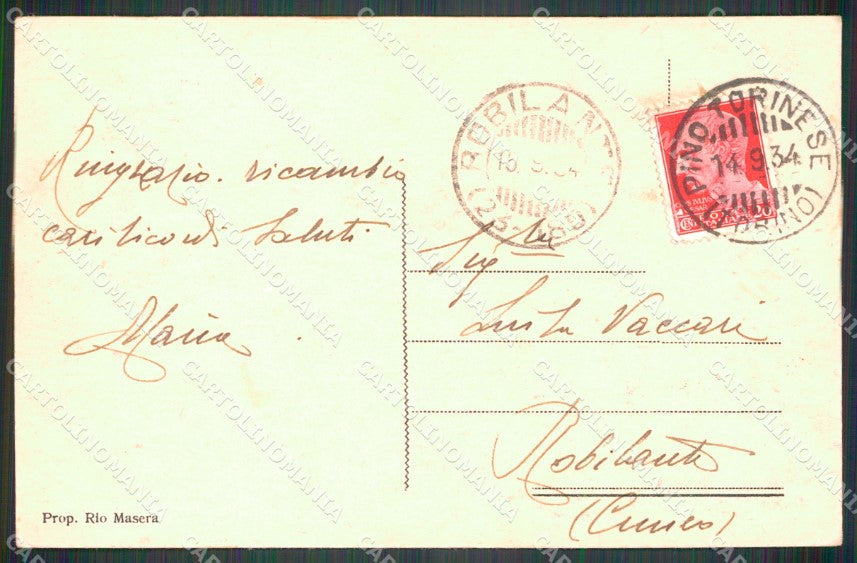 Ringrazio. ricambio
cari ricordi saluti
Maria
Prop. Rio Masera
ROBILANTE
PINO TORINESE (TORINO)
14.9.34
Sig.na
Luisa Vaccari
Robilante
(Cuneo)
CARTOLINOMANIA